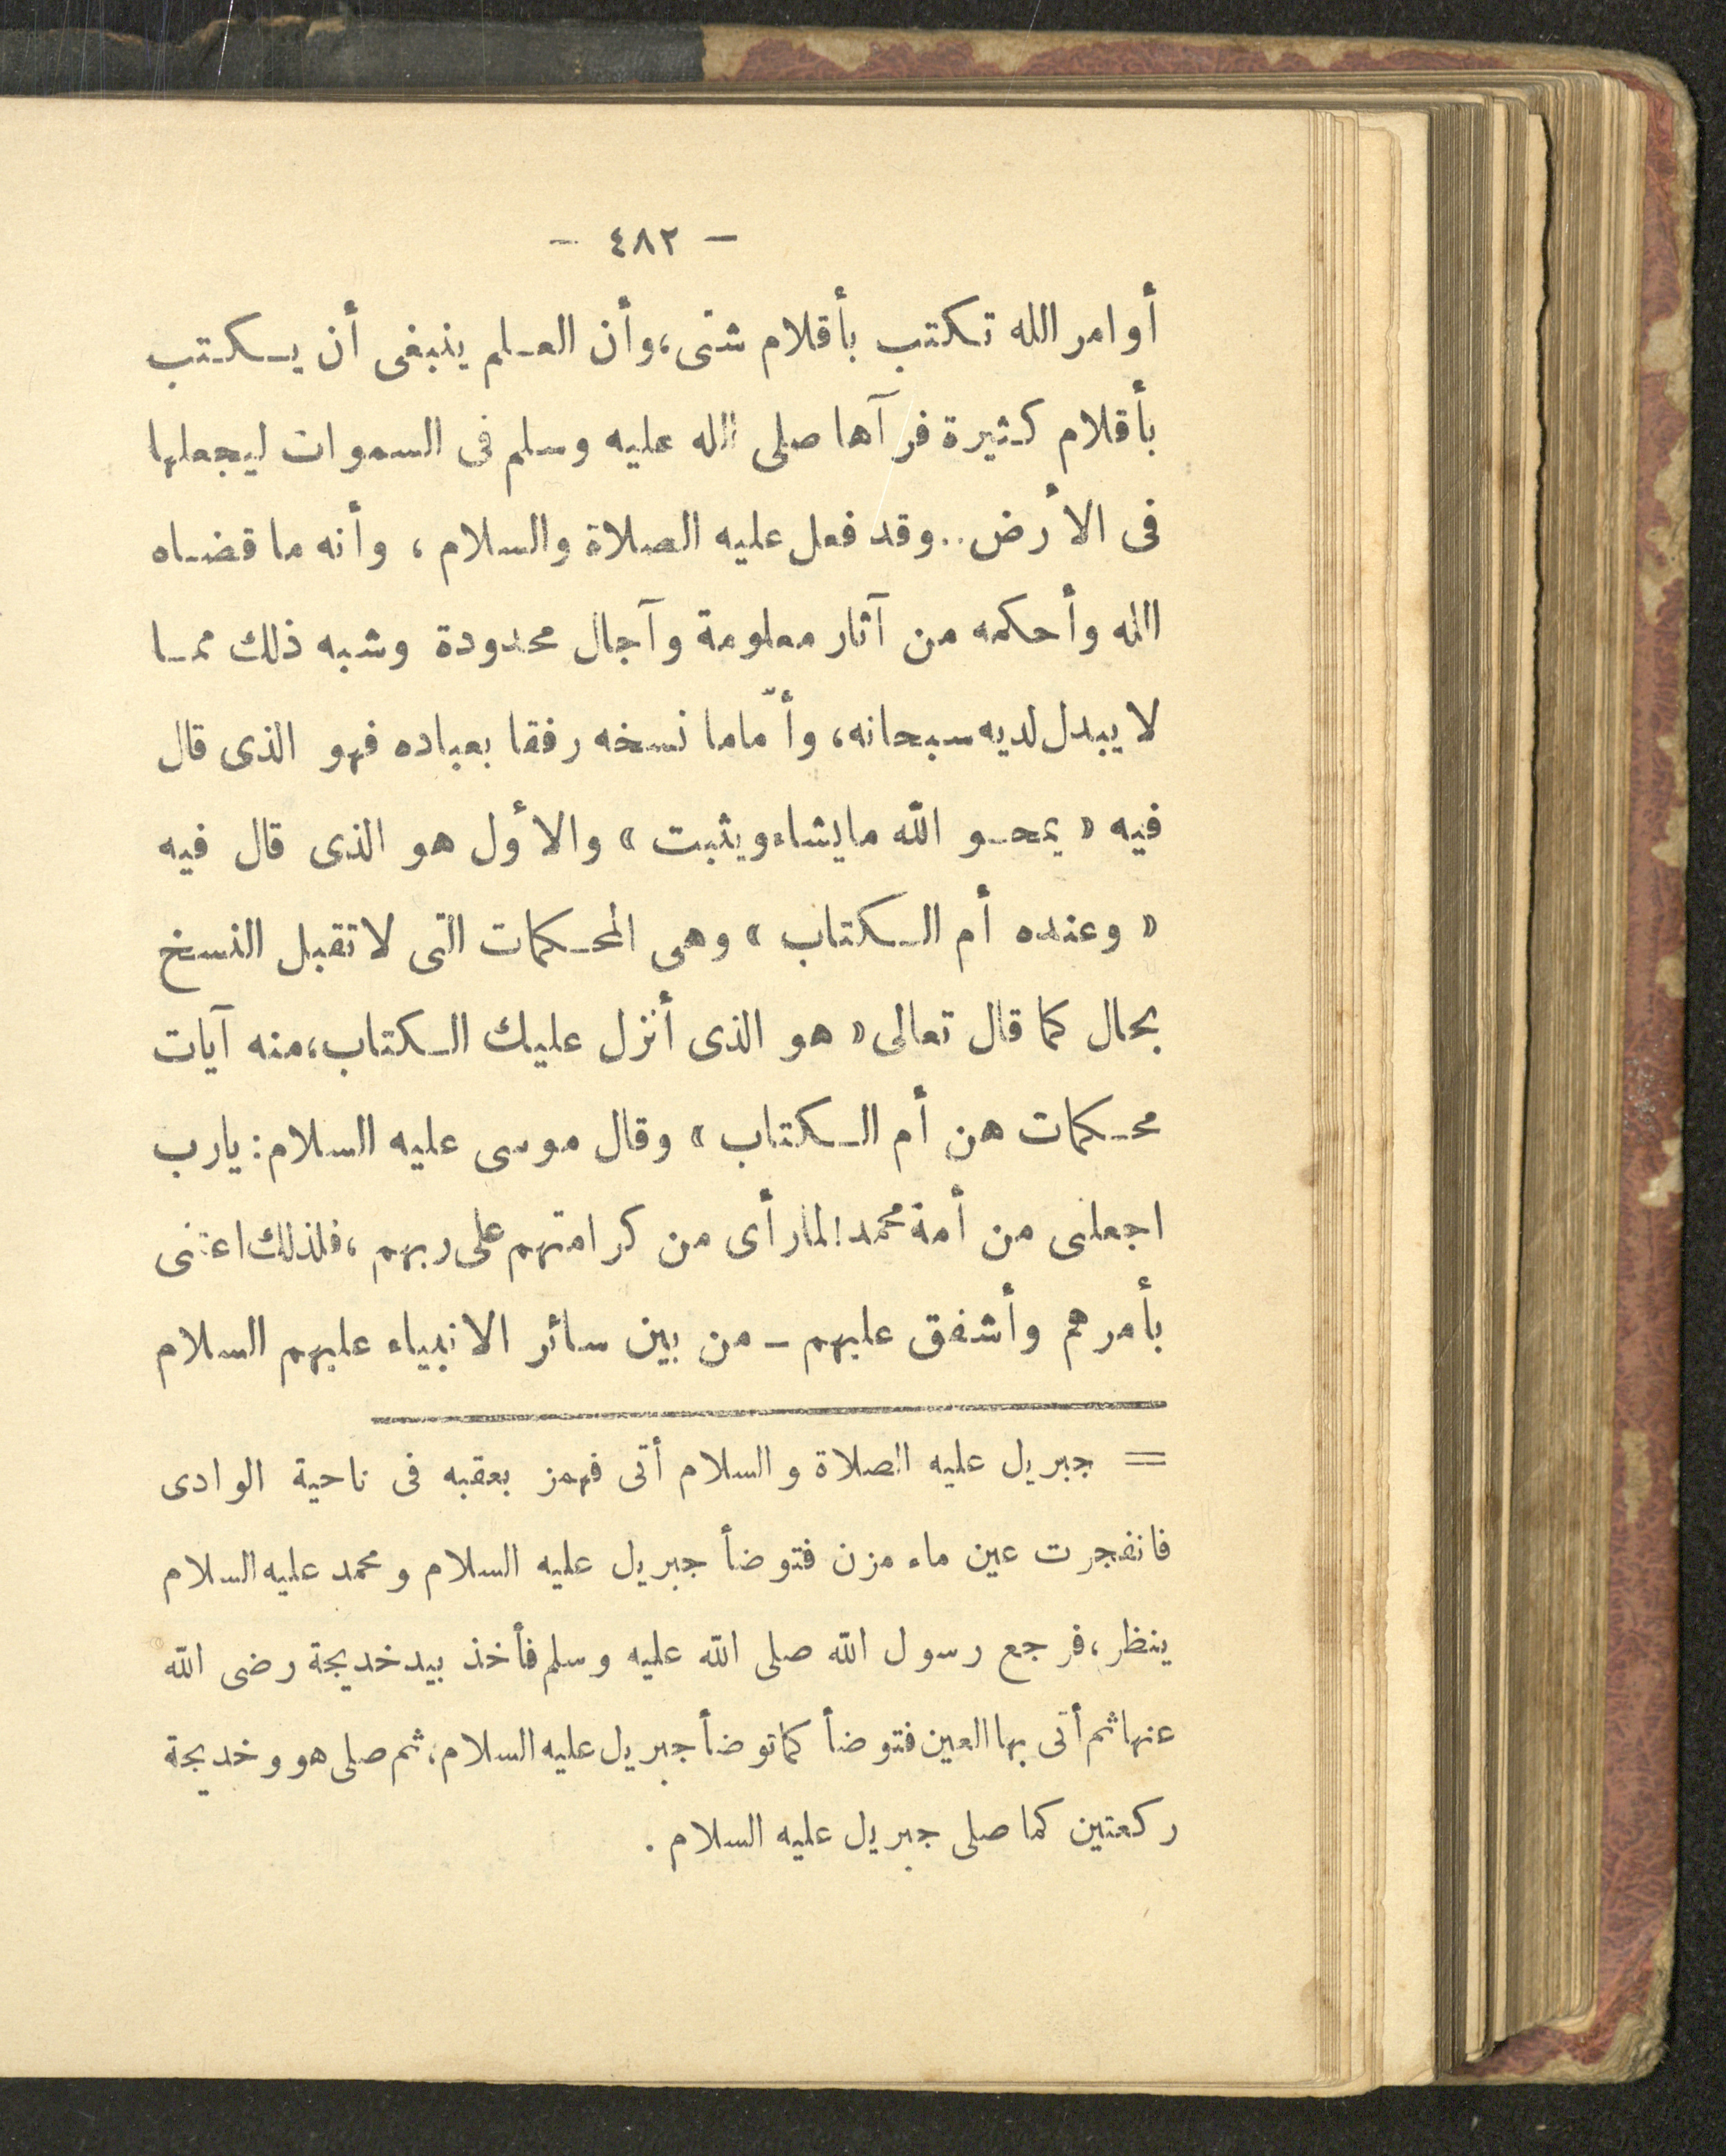 — ٤٨٢ —
أوامر الله تكتب بأقلام شتى، وأن العلم ينبغى أن يكتب
بأقلام كثيرة فرآها صلى الله عليه وسلم فى السموات ليجعلها
فى الأرض.. وقد فعل عليه الصلاة والسلام ، وأنه ما قضاه
الله وأحكمه من آثار معلومة وآجال محدودة وشبه ذلك مما
لا يبدل لديه سبحانه، وأمّا ما نسخه رفقا بعباده فهو الذى قال
فيه « يمحو الله ما يشاء ويثبت » والأول هو الذى قال فيه
« وعنده أم الكتاب » وهى المحكمات التى لا تقبل النسخ
بحال كما قال تعالى « هو الذى أنزل عليك الكتاب، منه آيات
محكمات هن أم الكتاب » وقال موسى عليه السلام : يارب
اجعلنى من أمة محمد! لما رأى من كرامتهم على ربهم ، فلذلك اعتنى
بأمرهم وأشفق عليهم - من بين سائر الانبياء عليهم السلام
= جبريل عليه الصلاة والسلام أتى فهمز بعقبه فى ناحية الوادى
فانفجرت عين ماء مزن فتوضأ جبريل عليه السلام ومحمد عليه السلام
ينظر ، فرجع رسول الله صلى الله عليه وسلم فأخذ بيد خديجة رضى الله
عنها ثم أتى بها العين فتوضأ كما توضأ جبريل عليه السلام، ثم صلى هو وخديجة
ركعتين كما صلى جبريل عليه السلام .